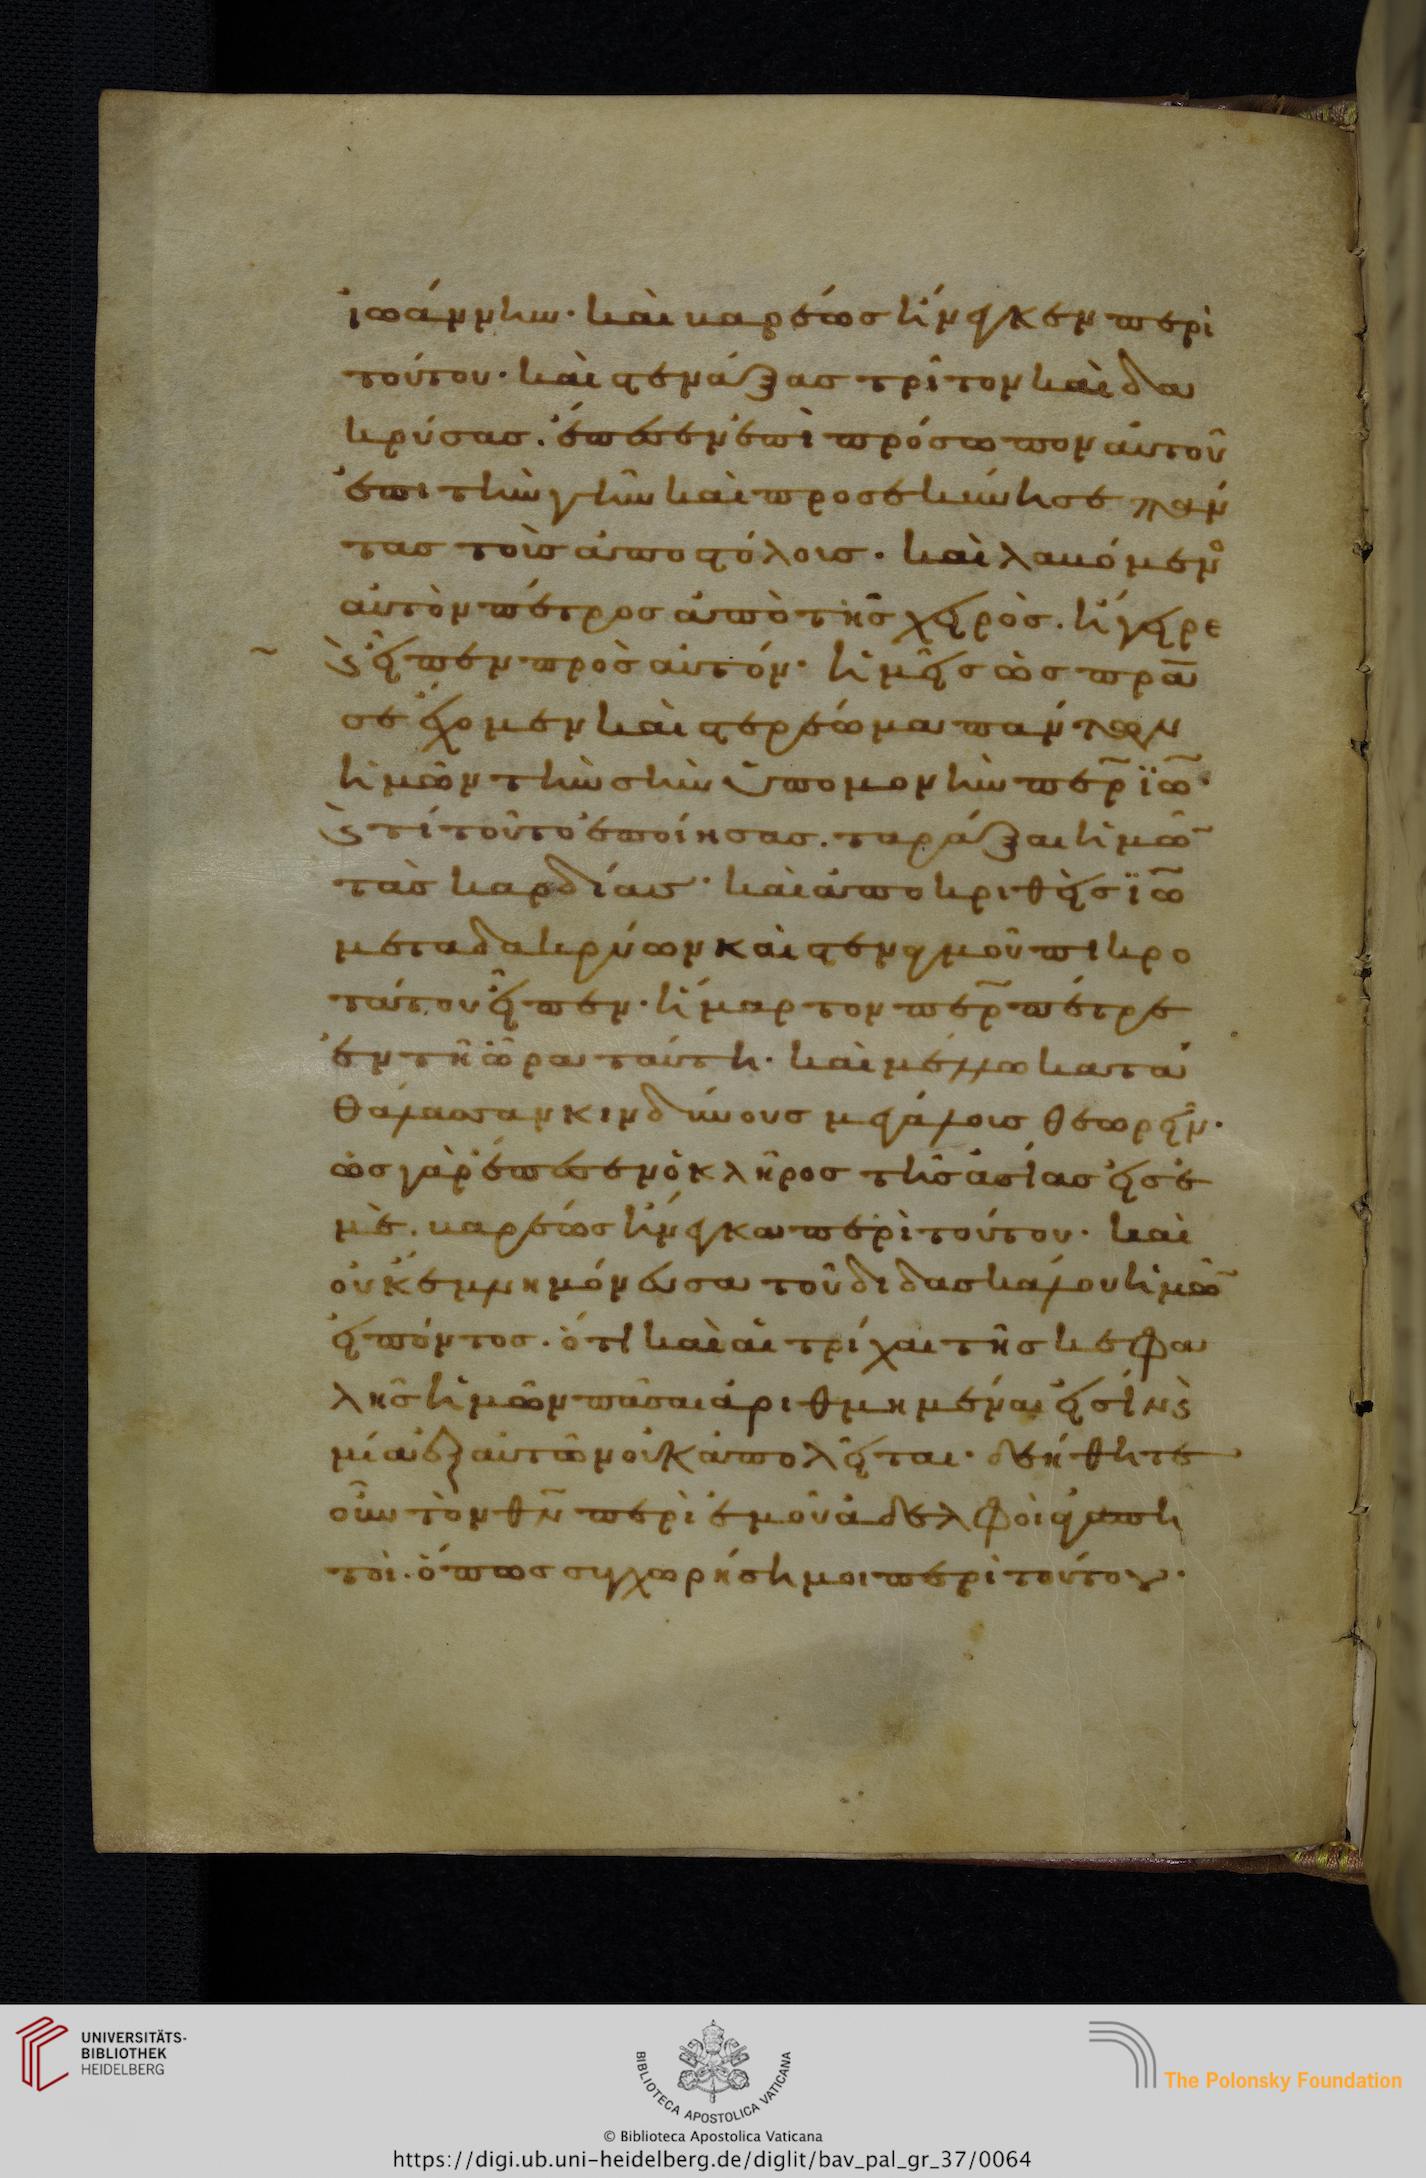 ἰωάννην· καὶ καρέως ἤνεγκεν περὶ
τούτου· καὶ στενάξας τρῖτον καὶ δα
κρύσας. ἔπεσεν ἐπὶ πρόσωπον αὐτοῦ
ἐπι τὴν γῆν καὶ προσεκύνησε πάν
τας τοὺς ἀποστόλους· καὶ
αὐτὸν πέτρος ἀπὸ τῆς χειρὸς. ἤγειρε
ϗ εἶπεν πρὸς αὐτόν· ἡμεῖς ὡς πρα
σε ἔχομεν καὶ στερέωμα πάντων
ἡμῶν τὴν σὴν ὑπομονὴν περ ϊω·
ϗ τί τοῦτο ἐποίησας. ταράξαι ἡμῶ
τὰς καρδίας· καὶ ἀποκριθεὶς ϊω
μετα δακρύων καὶ στεναγμοῦ πικρο
τάτου εἶπεν· ἥμαρτον περ πέτρε
ἐν τῆ ὥρα ταύτη· καὶ μέλλω κατὰ
θάλασσαν κινδύνους μεγάλους θεωρεῖν·
ὡς γὰρ ἔπεσεν ὁ κλῆρος τῆς ἀσίας εἰς ἐ
μὲ. καρέως ἤνεγκα περὶ τούτου· καὶ
οὐκ ἐμνημόνευσα τοῦ διδασκάλου ἡμῶ
εἰπόντος. ὅτι καὶ αἱ τρίχαι τῆς κεφα
λῆς ἡμῶν πᾶσαι ἀριθμημέναι εἰσὶν ϗ
μία ἐξ αὐτῶν οὐκ ἀπολεῖται· δεήθητε
οὖν τὸν θν περὶ ἐμοῦ ἀδελφοὶ ἀγαπη
τοὶ. ὅπως συχωρήση μοι περὶ τούτου.
UNIVERSITÄTS-
BIBLIOTHEK
HEIDELBERG
BIBLIOTECA APOSTOLICA VATICANA
The Polonsky Foundation
© Biblioteca Apostolica Vaticana
https://digi.ub.uni-heidelberg.de/diglit/bav_pal_gr_37/0064